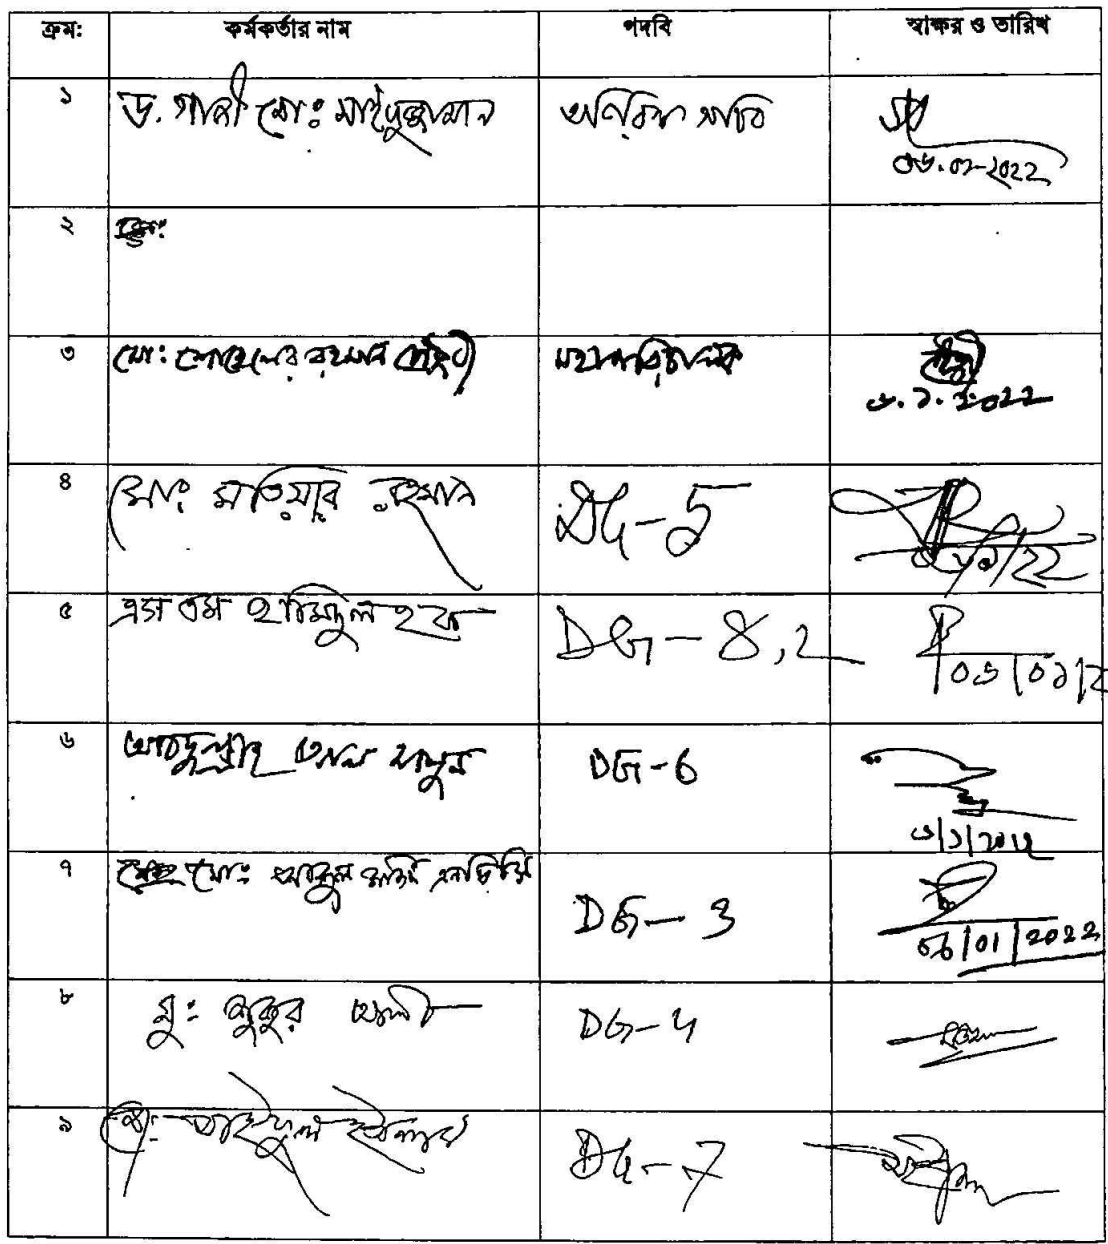 ক্রম: কর্মকর্তার নাম পদবি স্বাক্ষর ও তারিখ
১ ড. গাজী মোঃ সাইফুজ্জামান অতিরিক্ত সচিব
০৬.০১-২০২২
২
৩ মো: সোহেলের রহমান চৌধুরী মহাপরিচালক
৬.১.২০২২
৪ মোঃ মতিয়ার রহমান DG-5
৫ এস এম হামিদুল হক DG-8,2
০৬|০১|২
৬ আবদুল্লাহ আল মামুন DG-6
৬|১|২০২২
৭ মোঃ DG-3
06|01|2022
৮ মু: শুকুর আলী DG-4
৯ ইসলাম DG-7